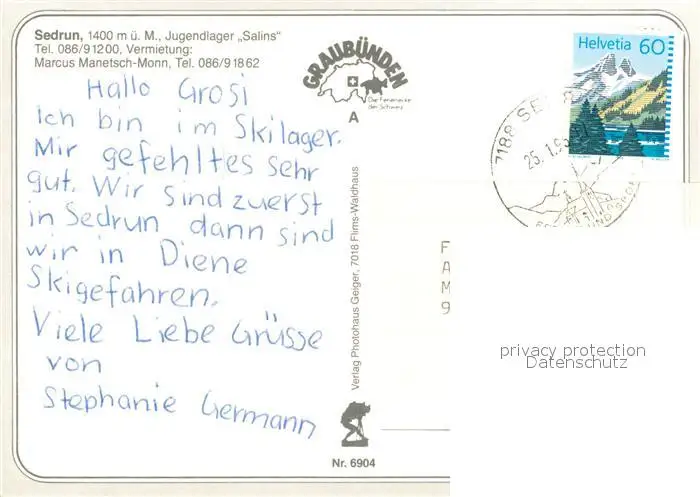 Sedrun, 1400 m ü. M., Jugendlager „Salins“
Tel. 086/9 12 00, Vermietung:
Marcus Manetsch-Monn, Tel. 086/9 18 62
Hallo Grosi
Ich bin im Skilager.
Mir gefehltes sehr
gut. Wir sind zuerst
in Sedrun dann sind
wir in Diene
Skigefahren.
Viele Liebe Grüsse
von
Stephanie Germann
GRAUBÜNDEN
Die Ferienecke
der Schweiz
A
Verlag Photohaus Geiger, 7018 Flims-Waldhaus
Nr. 6904
Helvetia 60
7188 SE
25.1.95
F
A
M
9
privacy protection
Datenschutz